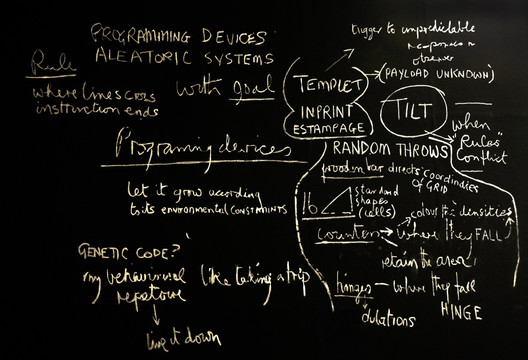 PROGRAMMING DEVICES
ALEATORIC SYSTEMS
with goal
Rule
where lines cross
instruction ends
Programing devices
let it grow according
to its ENVIRONMENTAL CONSTRAINTS
GENETIC CODE?
my behavioural
repetoire
like taking a trip
live it down
trigger to unpredictable
response in
observer
(PAYLOAD UNKNOWN)
TEMPLET
INPRINT
ESTAMPAGE
TILT
when
"Rules
Conflict
RANDOM THROWS
wooden bar directs coordinates
OF GRID
16
standard
shapes
(cells)
colour the densities
counters
where they FALL
retain the area
hinges — where they fall
HINGE